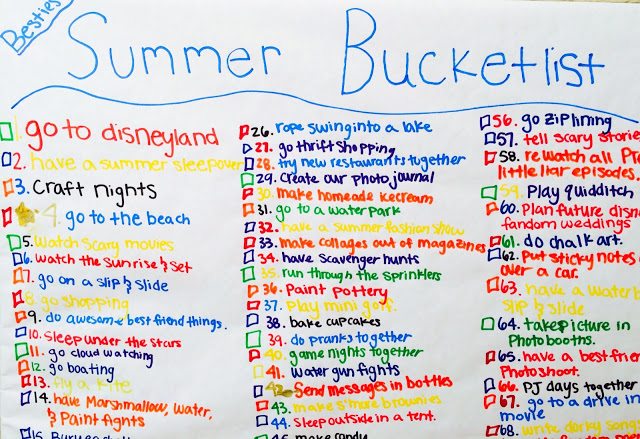 Besties
Summer Bucketlist
1. go to disneyland
2. have a summer sleepover
3. Craft nights
4. go to the beach
5. Watch scary movies
6. watch the sunrise & set
7. go on a slip & slide
8. go shopping
9. do awesome best friend things.
10. Sleep under the stars
11. go cloud watching
12. go boating
13. fly a kite
14. have Marshmallow, Water,
& Paint fights
15.
26. rope swing into a lake
27. go thrift shopping
28. try new restaurants together
29. Create our photo journal
30. make homeade icecream
31. go to a water park
32. have a summer fashion show
33. make collages out of magazines
34. have scavenger hunts
35. run through the sprinklers
36. Paint pottery
37. Play mini golf.
38. bake cupcakes
39. do pranks together
40. game nights together
41. water gun fights
42. Send messages in bottles
43. make s'more brownies
44. Sleep outside in a tent.
45. make candy
56. go ziplining
57. tell scary storie
58. rewatch all Pr
little liar episodes.
59. Play quidditch
60. Plan future disn
fandom weddings
61. do chalk art.
62. Put sticky notes
over a car.
63. have a water b
slip & slide
64. take picture in
Photobooths.
65. have a best frie
Photoshoot.
66. PJ days together
67. go to a drive in
movie
68. write dorky song